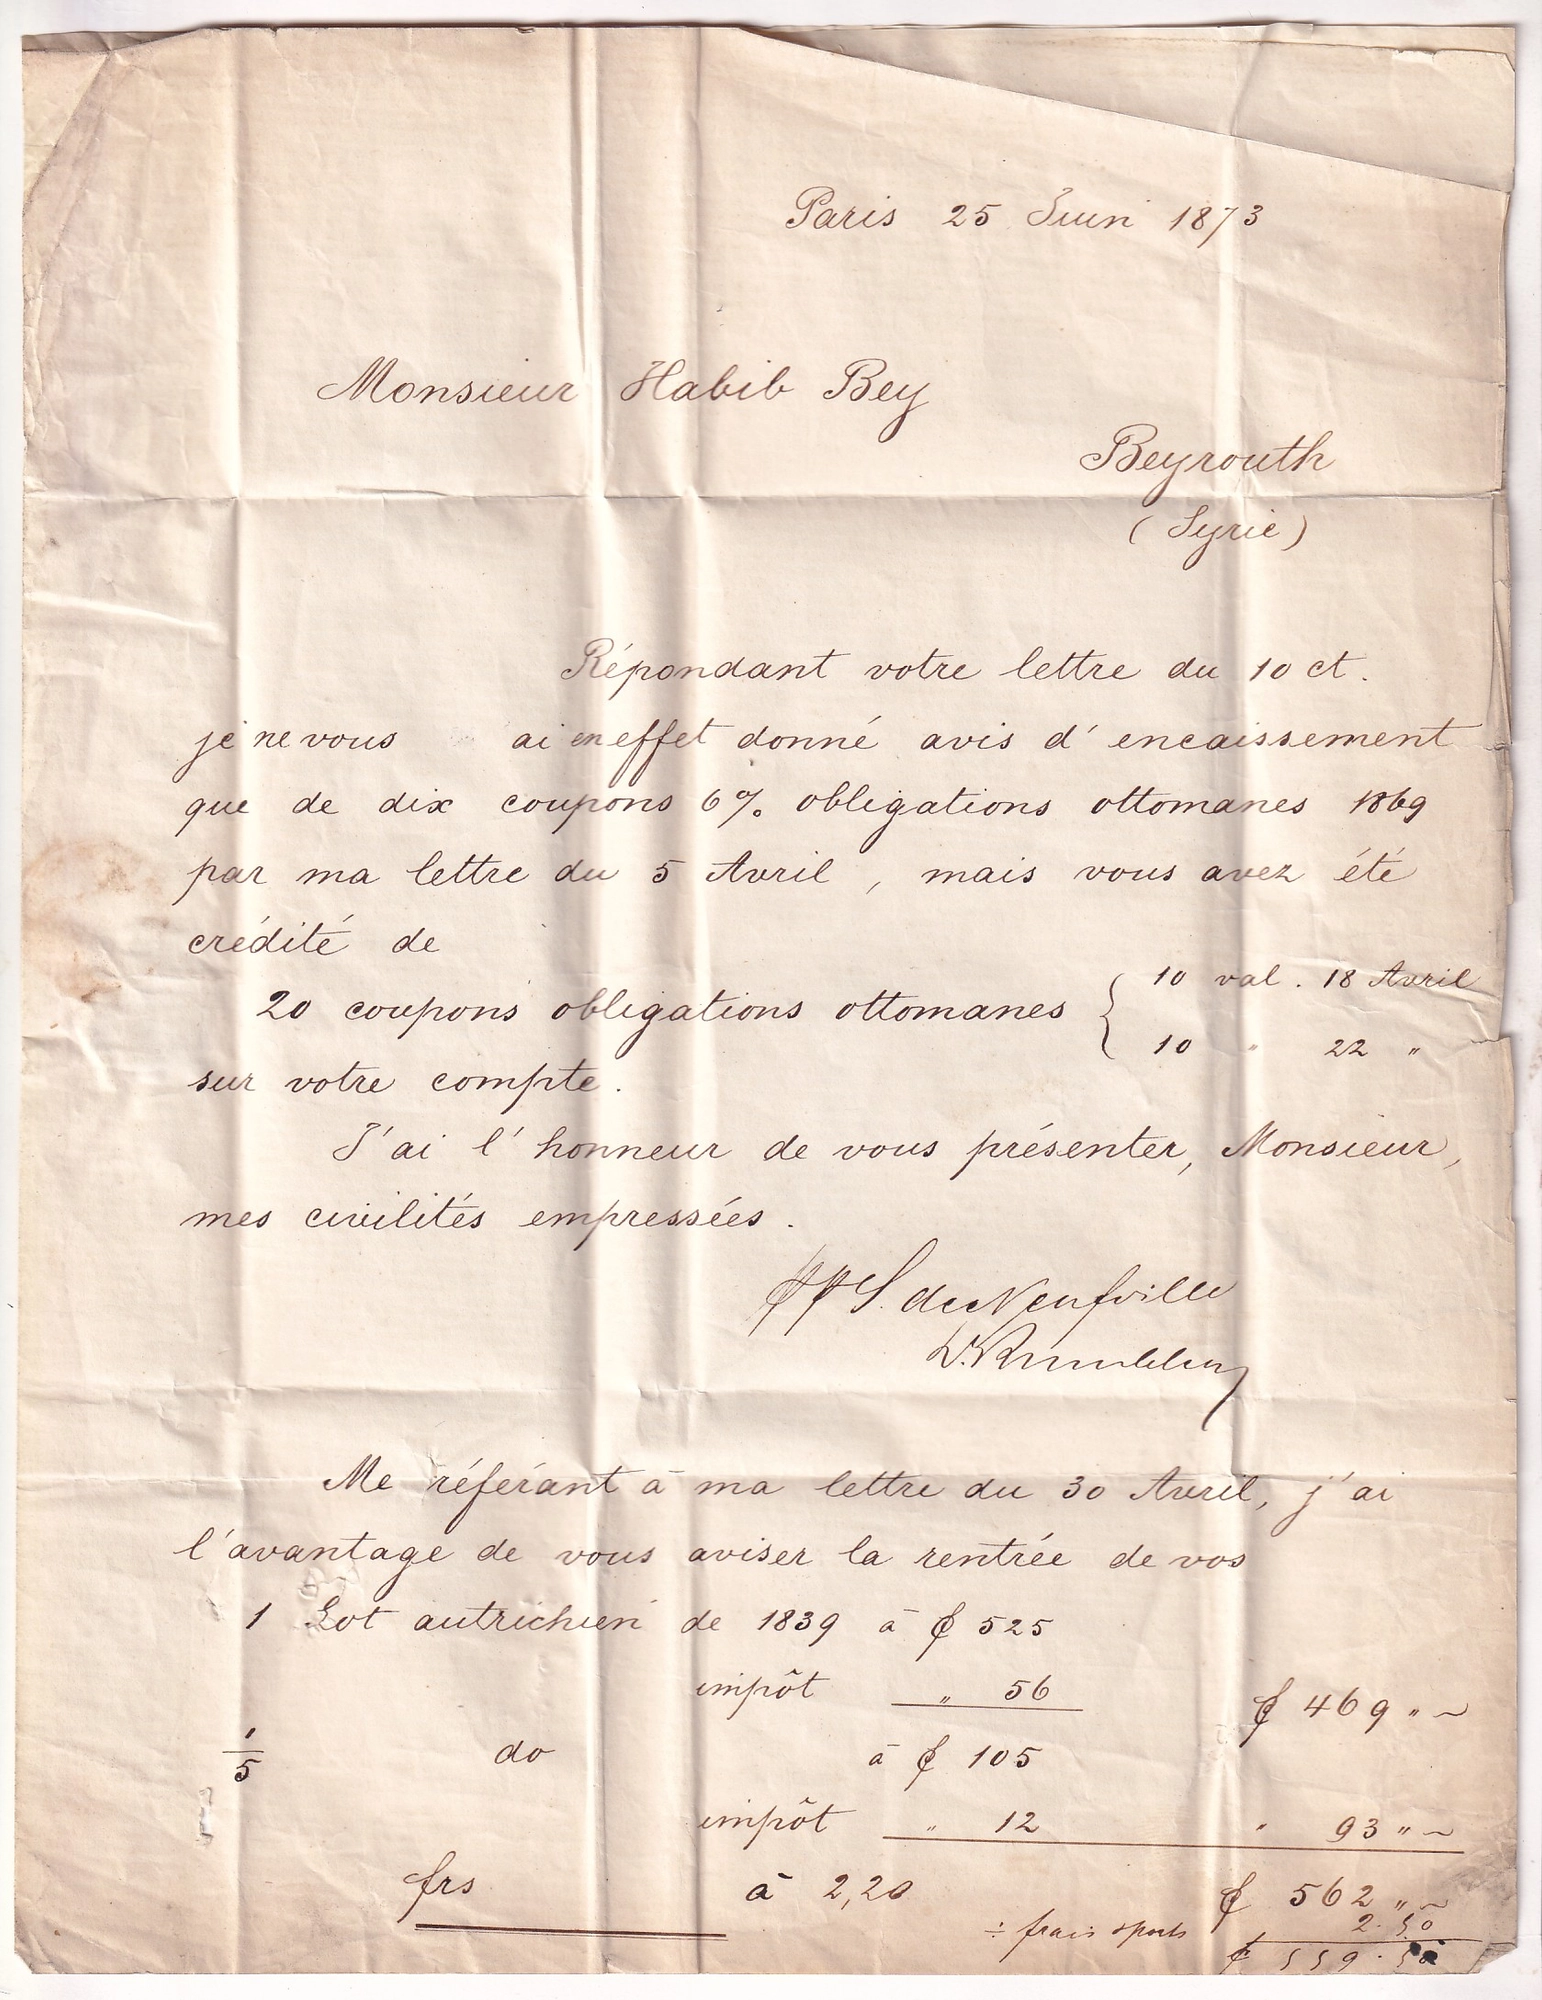 Paris 25 Juin 1873
Monsieur Habib Bey
Beyrouth
(Syrie)
Répondant votre lettre du 10 ct.
je ne vous ai en effet donné avis d'encaissement
que de dix coupons 6% obligations ottomanes 1869
par ma lettre du 5 Avril, mais vous avez été
crédité de
20 coupons obligations ottomanes { 10 val. 18 Avril
10 " 22 "
sur votre compte.
J'ai l'honneur de vous présenter, Monsieur,
mes civilités empressées.
S. de Neufville
Me référant à ma lettre du 30 Avril, j'ai
l'avantage de vous aviser la rentrée de vos
1 Lot autrichien de 1839 à ₡ 525
impôt " 56 ₡ 469 " ~
1/5 do à ₡ 105
impôt " 12 " 93 " ~
frs à 2,20 ₡ 562 " ~
÷ frais 2.50
₡ 559.50